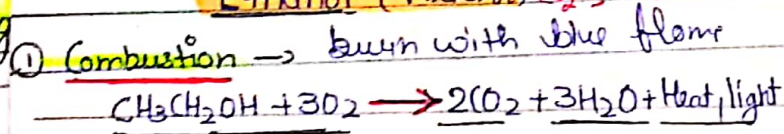 ① Combustion → burn with blue flame
CH3CH2OH + 3O2 → 2CO2 + 3H2O + Heat, light